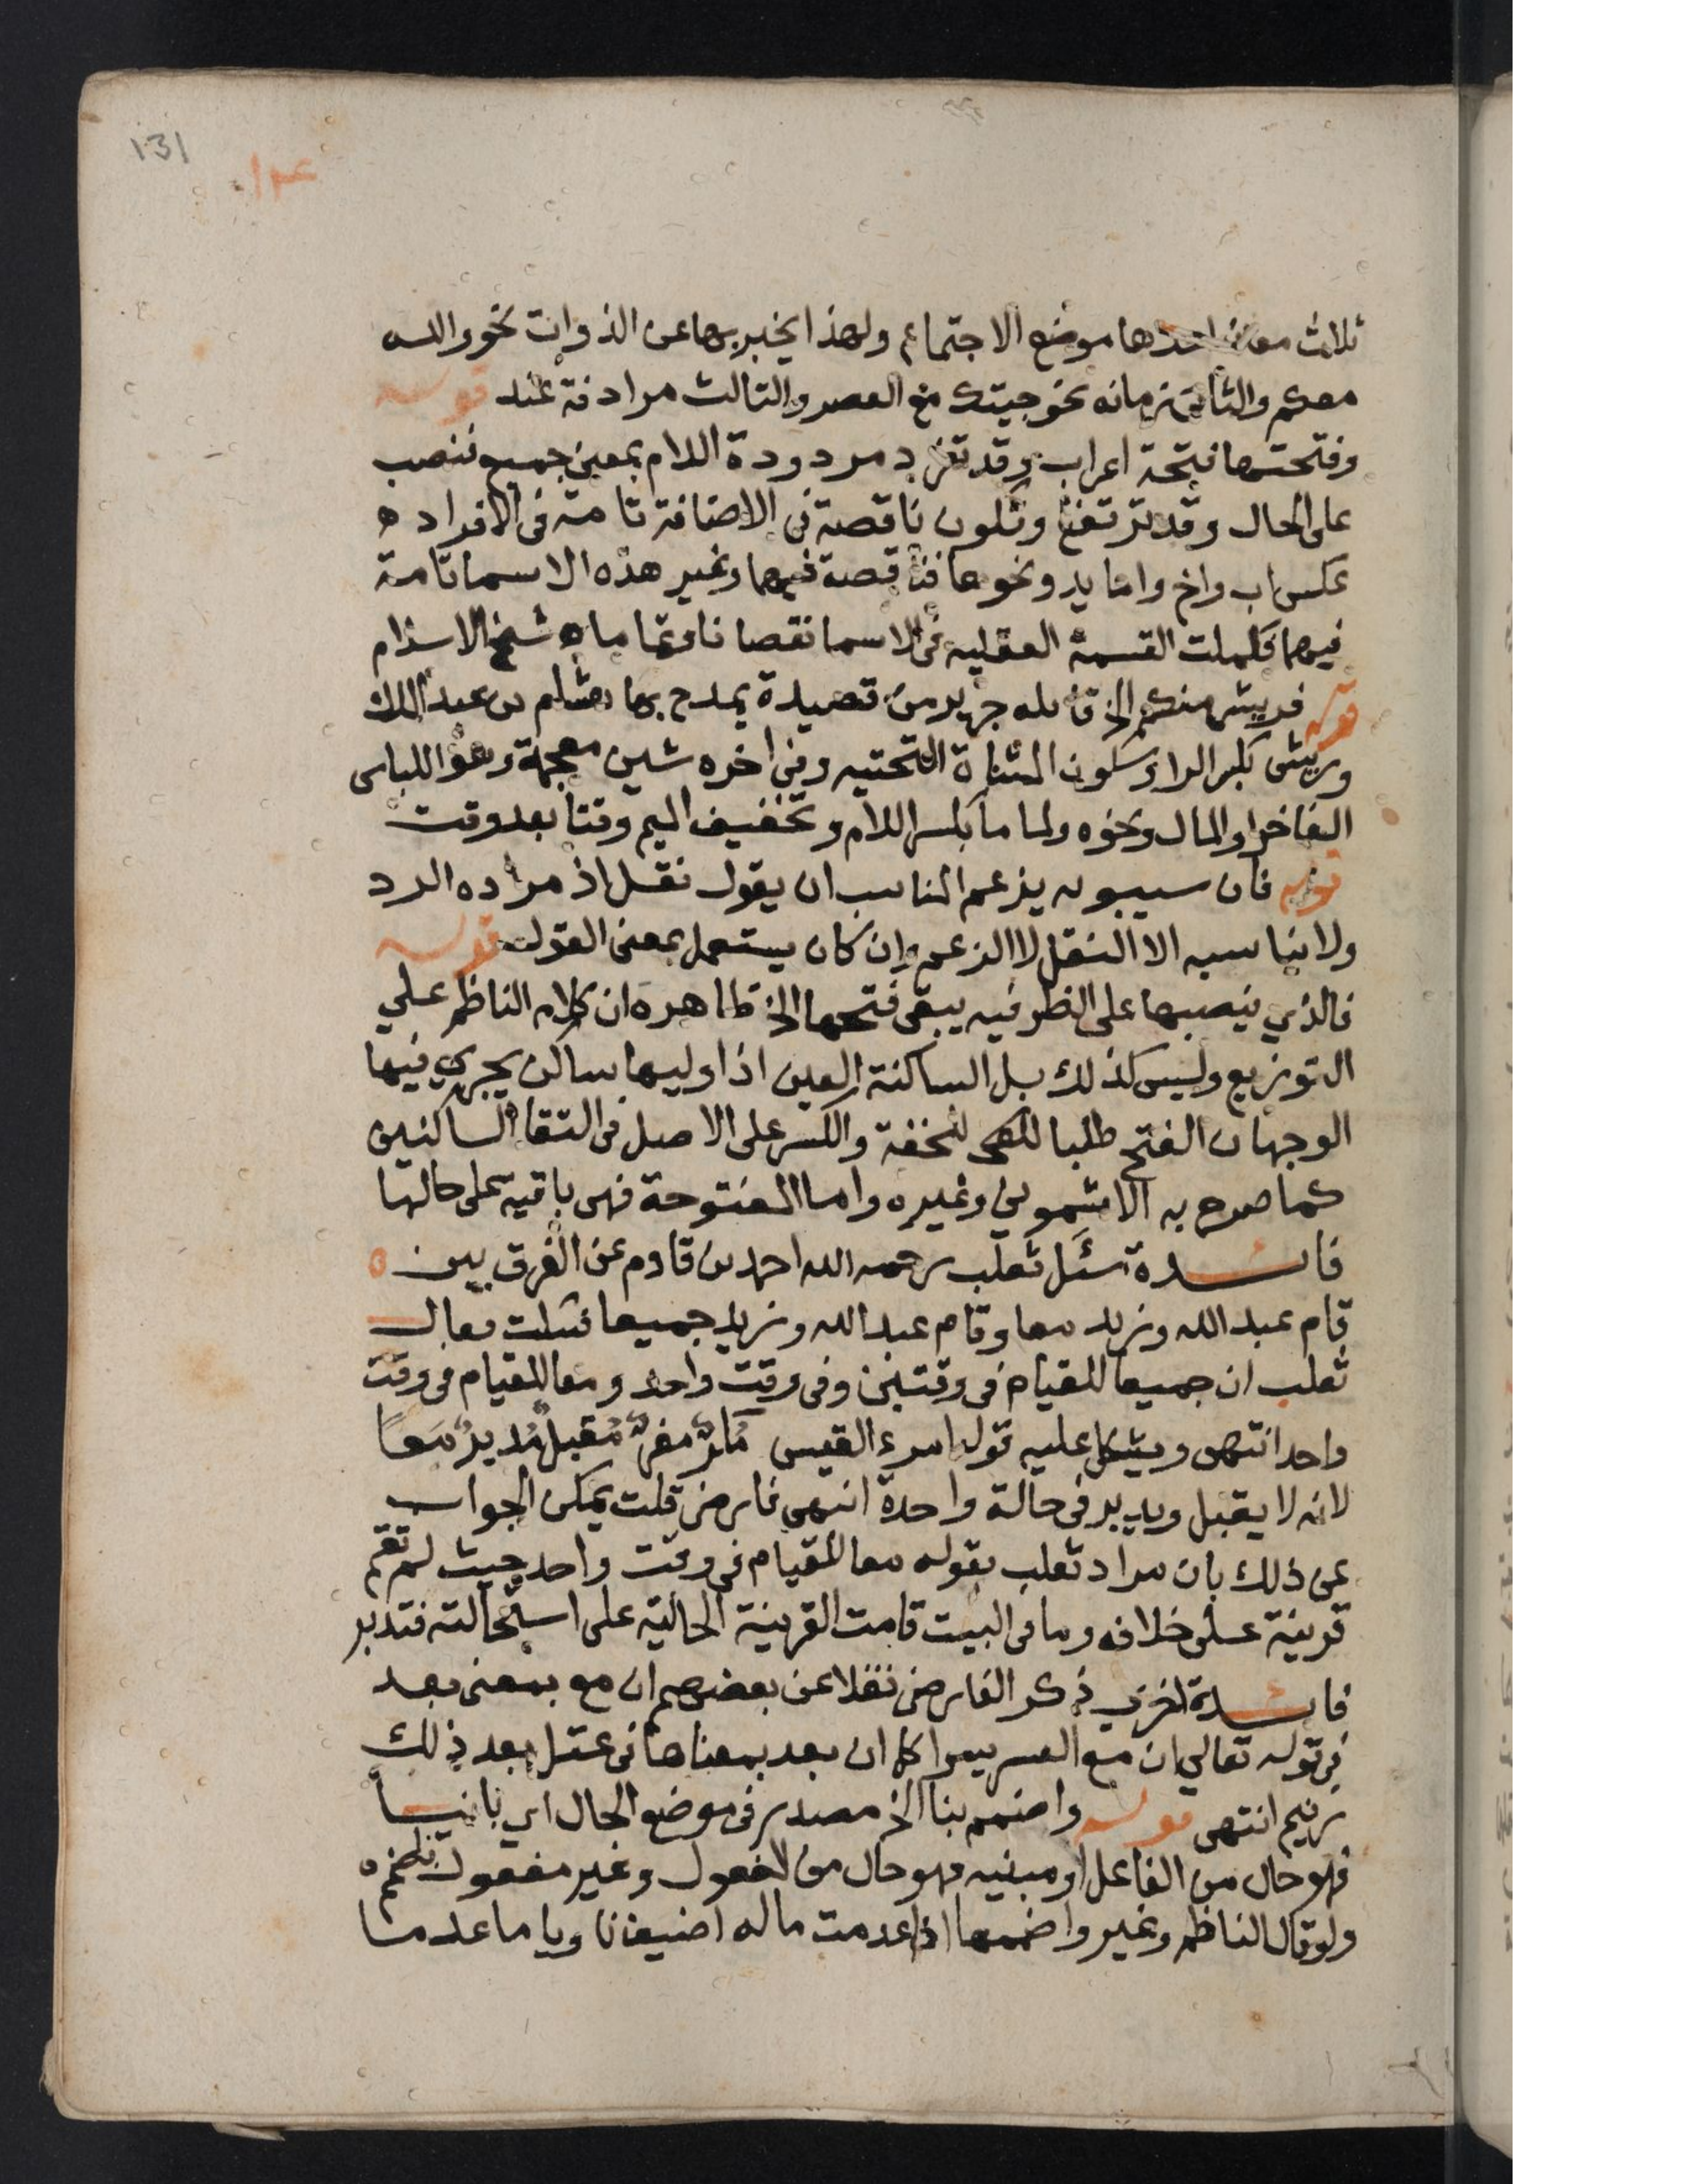 131
ثلاث معان احدها موضع الاجتماع ولهذا يخبر بها عن الذوات نحو والله
معكم والثاني زمانه نحو جيتك مع العصر والثالث مرادفة عند قوله
وفتحتها فتحة اعراب وقد تفرد مردودة اللام بمعنى جميع فتنصب
على الحال وقد ترتفع وتكون ناقصة في الاضافة تامة في الافراد ه
عكس اب واخ واما يد ونحوها فناقصة فيهما وغير هذه الاسما تامة
فيهما فكملت القسمة العقلية في الاسما نقصا وتماما ه شيخ الاسلام
قوله فريشي منكم الخ قائله جرير من قصيدة يمدح بها هشام بن عبد الملك
وريش بكسر الرا وسكون المثناة التحتيه وفي اخره شين معجمة وهو اللباس
الفاخر او المال ونحوه ولماما بكسر اللام وتخفيف الميم وقتا بعد وقت
قوله فان سيبويه يزعم المناسب ان يقول نقل اذ مراده الرد
ولا يناسبه الا النقل لا الزعم وان كان يستعمل بمعنى القول قوله
فالذي ينصبها على الظرفيه يبقى فتحها الخ ظاهره ان كلام الناظم على
التوزيع وليس كذلك بل الساكنة العين اذا وليها ساكن يجري فيها
الوجهان الفتح طلبا للخفة والكسر على الاصل في التقا الساكنين
كما صرح به الاشموني وغيره واما المفتوحة فهي باقية على حالها
فائدة سئل ثعلب رحمه الله احمد بن قادم عن الفرق بين ه
قام عبد الله وزيد معا وقام عبد الله وزيد جميعا فسكت فقال
ثعلب ان جميعا للقيام في وقتين وفي وقت واحد ومعا للقيام في وقت
واحد انتهى ويشكل عليه قول امرء القيس مكرٍّ مفرٍّ مقبلٍ مدبرٍ معًا
لانه لا يقبل ويدبر في حالة واحدة انتهى فارضي قلت يمكن الجواب
عن ذلك بان مراد ثعلب بقوله معا للقيام في وقت واحد حيث لم تقم
قرينة على خلافه وما في البيت قامت القرينة الحالية على استحالته فتدبر
فائدة اخرى ذكر الفارضي نقلا عن بعضهم ان مع بمعنى بعد
في قوله تعالى ان مع العسر يسرا كما ان بعد بمعناها في عتل بعد ذلك
زنيم انتهى قوله واضمم بنا الخ مصدر في موضع الحال اي بانيا
فهو حال من الفاعل او مبنيه فهو حال من المفعول وغير مفعول
ولو قال الناظم وغير واضممها اذا عدمت ما له اضيف ناويا ما عدما